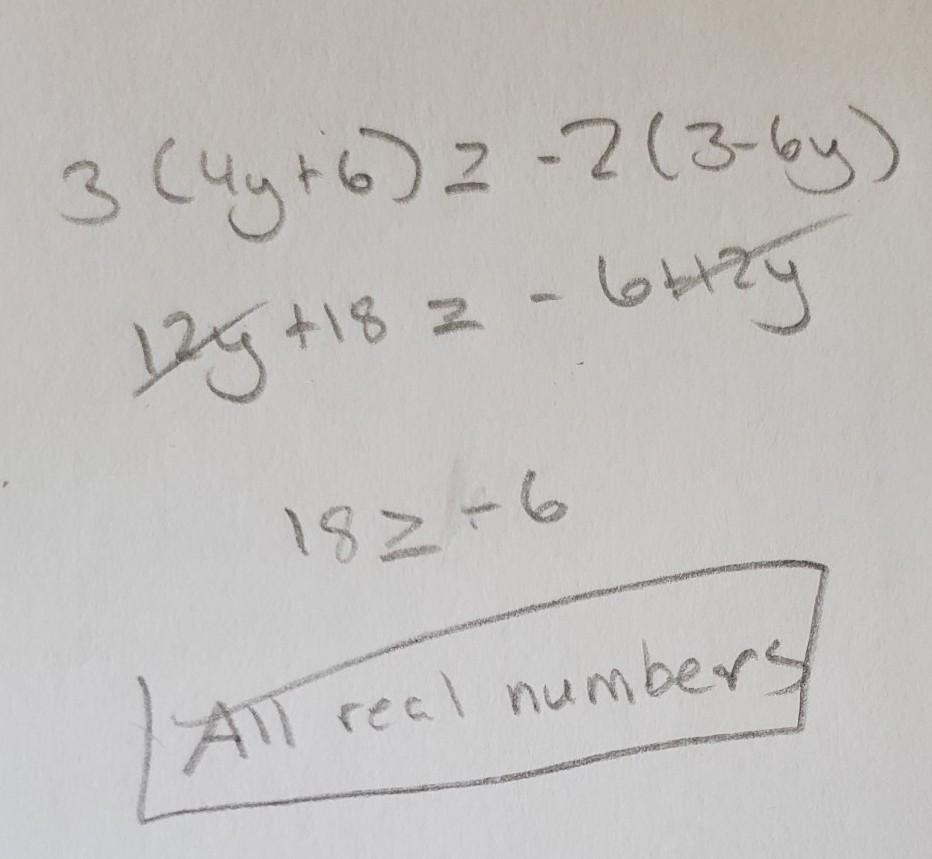 3(4y+6) ≥ -2(3-6y)
12y+18 ≥ -6+12y
18 ≥ -6
All real numbers